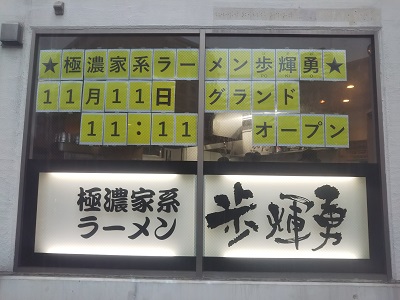 ★極濃家系ラーメン歩輝勇★
11月11日 グランド
11:11 オープン
極濃家系
ラーメン
歩輝勇